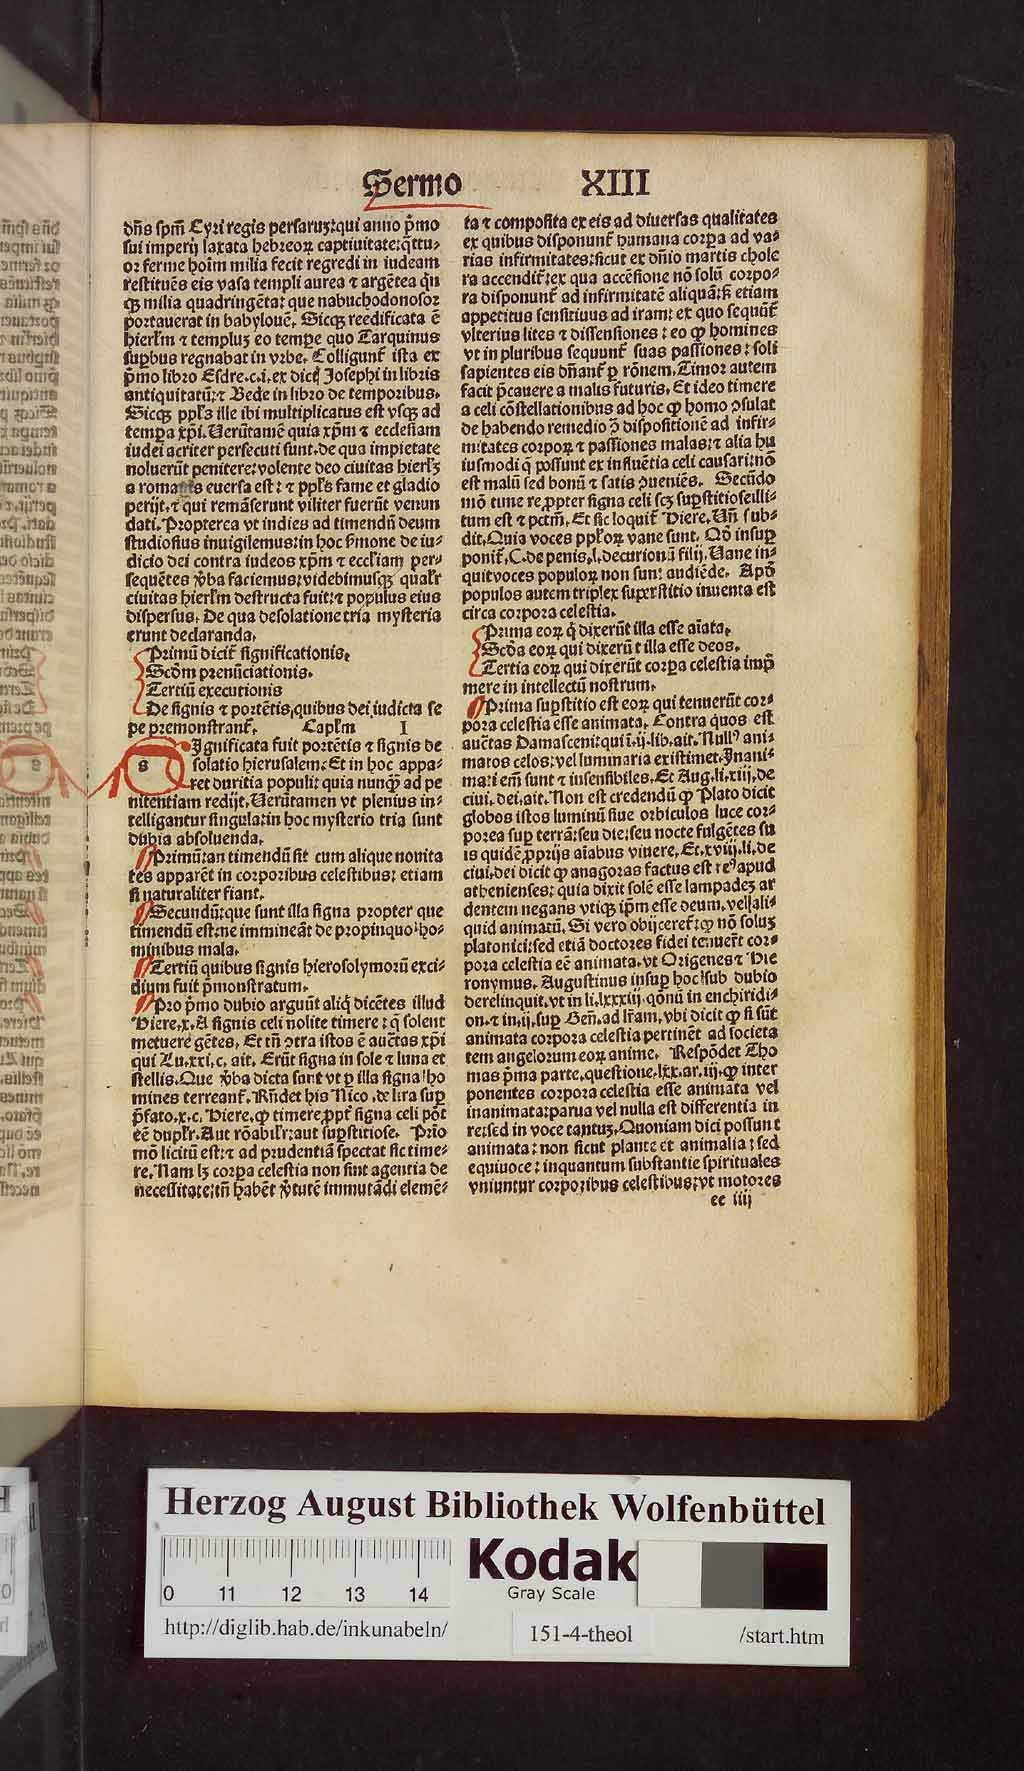 Sermo XIII
dñs spm̄ Cyri regis persaruꝫ: qui anno p̄mo
sui imperij laxata hebreoꝝ captiuitate: q̄ttu⸗
or ferme hoim̄ milia fecit regredi in iudeam
restituēs eis vasa templi aurea ⁊ argētea q̄n
qꝫ milia quadringēta: que nabuchodonosor
portauerat in babylouē. Sicqꝫ reedificata ē
hierl̄m ⁊ templuꝫ eo tempe quo Tarquinus
suꝑbus regnabat in vrbe. Colligunt̄ ista ex
p̄mo libro Esdre.c.i.ex dict Josephi in libris
antiquitatū: ⁊ Bede in libro de temporibus.
Sicqꝫ ppl̄s ille ibi multiplicatus est vsqꝫ ad
tempa xp̄i. Uerūtamē quia xp̄m ⁊ ecclesiam
iudei acriter persecuti sunt. de qua impietate
noluerūt penitere: volente deo ciuitas hierl̄ꝫ
a romanis euersa est: ⁊ ppl̄s fame et gladio
perijt. ⁊ qui remāserunt viliter fuerūt venun
dati. Propterea vt indies ad timendū deum
studiosius inuigilemus: in hoc s̄mone de iu⸗
dicio dei contra iudeos xp̄m ⁊ eccl̄iam per⸗
sequētes v̄ba faciemus: videbimusqꝫ qual̄r
ciuitas hierl̄m destructa fuit: ⁊ populus eius
dispersus. De qua desolatione tria mysteria
erunt declaranda.
Primū dicit̄ significationis.
Scd̄m prenūciationis.
Tertiū executionis
De signis ⁊ portētis, quibus dei iudicia se
pe premonstrant̄. Capl̄m I
s Ignificata fuit portētis ⁊ signis de
solatio hierusalem: Et in hoc appa⸗
ret duritia populi: quia nunqͣ̄ ad pe
nitentiam redijt. Uerūtamen vt plenius in⸗
telligantur singula: in hoc mysterio tria sunt
dubia absoluenda.
Primū: an timendū sit cum alique nouita
tes apparēt in corporibus celestibus: etiam
si naturaliter fiant.
Secundū: que sunt illa signa propter que
timendū est: ne immineāt de propinquo ho⸗
minibus mala.
Tertiū quibus signis hierosolymorū exci⸗
dium fuit p̄monstratum.
Pro p̄mo dubio arguūt aliq̄ dicētes illud
Hiere.x. A signis celi nolite timere: q̄ solent
metuere gētes. Et tn̄ ꝯtra istos ē auctas xp̄i
qui Lu.xxi.c. ait. Erūt signa in sole ⁊ luna et
stellis. Que v̄ba dicta sunt vt ꝑ illa signa ho
mines terreant̄. Rn̄det his Nico. de lira suꝑ
p̄fato.x.c. Hiere. ꝙ timere ꝓpt̄ signa celi pōt
eē dupl̄r. Aut rōabil̄r: aut suꝑstitiose. Prio
mō licitū est: ⁊ ad prudentiā spectat sic time⸗
re. Nam lꝫ corpa celestia non sint agentia de
necessitate: tn̄ habēt v̄tutē immutādi elemē⸗
ta ⁊ composita ex eis ad diuersas qualitates
ex quibus disponunt̄ humana corpa ad va⸗
rias infirmitates: sicut ex dn̄io martis chole
ra accendit̄: ex qua accēsione nō solū corpo⸗
ra disponunt̄ ad infirmitatē aliquā: sꝫ etiam
appetitus sensitiuus ad iram: ex quo sequūt̄
vlterius lites ⁊ dissensiones: eo ꝙ homines
vt in pluribus sequunt̄ suas passiones: soli
sapientes eis dn̄ant̄ ꝑ rōnem. Timor autem
facit p̄cauere a malis futuris. Et ideo timere
a celi cōstellationibus ad hoc ꝙ homo ꝯsulat
de habendo remedio ꝯ̄ dispositionē ad infir⸗
mitates corpoꝝ ⁊ passiones malas: ⁊ alia hu
iusmodi q̄ possunt ex influētia celi causari: nō
est malū sed bonū ⁊ satis ꝯueniēs. Secūdo
mō time re ꝓpter signa celi scꝫ suꝑstitiose illi⸗
tum est ⁊ pctm̄. Et sic loquit̄ Hiere. Un̄ sub⸗
dit. Quia voces ppl̄oꝝ vane sunt. Qd̄ insuꝑ
ponit̄. C. de penis. l. decurionū filij. Uane in⸗
quit voces populoꝝ non sunt audiēde. Apd̄
populos autem triplex superstitio inuenta est
circa corpora celestia.
Prima eoꝝ q̄ dixerūt illa esse aīata.
Scd̄a eoꝝ qui dixerūt illa esse deos.
Tertia eoꝝ qui dixerūt corpa celestia imp̄
mere in intellectū nostrum.
Prima suꝑstitio est eoꝝ qui tenuerūt cor⸗
pora celestia esse animata. Contra quos est
auctas Damasceni: qui ī.ij.lib. ait. Null⁹ ani⸗
matos celos: vel luminaria existimet. Inani⸗
ma: i em̄ sunt ⁊ insensibiles. Et Aug. li.xiij. de
ciui. dei. ait. Non est credendū ꝙ Plato dicit
globos istos luminū siue orbiculos luce cor⸗
porea suꝑ terrā: seu die: seu nocte fulgētes su
is quidē ꝓprijs aīabus viuere. Et.xviij.li. de
ciui. dei dicit ꝙ anagoras factus est re⁹ apud
athenienses: quia dixit solē esse lampadeꝫ ar
dentem negans vtiqꝫ ip̄m esse deum. vel ali⸗
quid animatū. Si vero obijceret̄: ꝙ nō soluꝫ
platonici: sed etiā doctores fidei tenuer̄t cor⸗
pora celestia eē animata. vt Origenes ⁊ Hie
ronymus. Augustinus insuꝑ hoc sub dubio
derelinquit. vt in li.lxxxiij.qōnū in enchiridi⸗
on. ⁊ in.ij. suꝑ Gen̄. ad lr̄am. vbi dicit ꝙ si sūt
animata corpora celestia pertinēt ad societa
tem angelorum eoꝝ anime. Respōdet Tho
mas p̄ma parte. questione.lxx.ar.iij. ꝙ inter
ponentes corpora celestia esse animata vel
inanimata: parua vel nulla est differentia in
re: sed in voce tantuꝫ. Quoniam dici possunt
animata: non sicut plante et animalia: sed
equiuoce: inquantum substantie spirituales
vniuntur corporibus celestibus: vt motores
ee iiij
Herzog August Bibliothek Wolfenbüttel
0 11 12 13 14
Kodak
Gray Scale
http://diglib.hab.de/inkunabeln/
151-4-theol
/start.htm